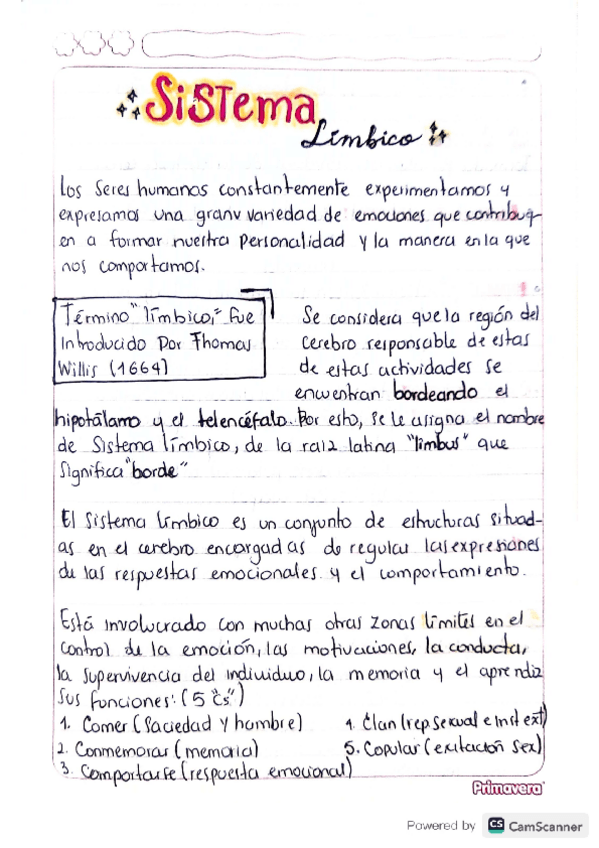 Sistema
Límbico
Los seres humanos constantemente experimentamos y
expresamos una granv variedad de emociones que contribuy-
en a formar nuestra personalidad y la manera en la que
nos comportamos.
Término "límbico," fue
Introducido Por Thomas
Willis (1664)
Se considera que la región del
cerebro responsable de estas
de estas actividades se
encuentran bordeando el
hipotálamo y el telencéfalo. Por esto, se le asigna el nombre
de Sistema límbico, de la raiz latina "limbus" que
significa "borde"
El sistema límbico es un conjunto de estructuras situad-
as en el cerebro encargadas de regular las expresiones
de las respuestas emocionales y el comportamiento.
Está involucrado con muchas otras zonas límites en el
control de la emoción, las motivaciones, la conducta,
la supervivencia del individuo, la memoria y el aprendiz
Sus funciones: (5 "Cs")
1. Comer (Saciedad y hambre)
4. Clan (rep. sexual e Inst ext)
2. Conmemorar (memoria)
5. Copular (exitación sex)
3. Comportarse (respuesta emocional)
Primavera
Powered by CS CamScanner